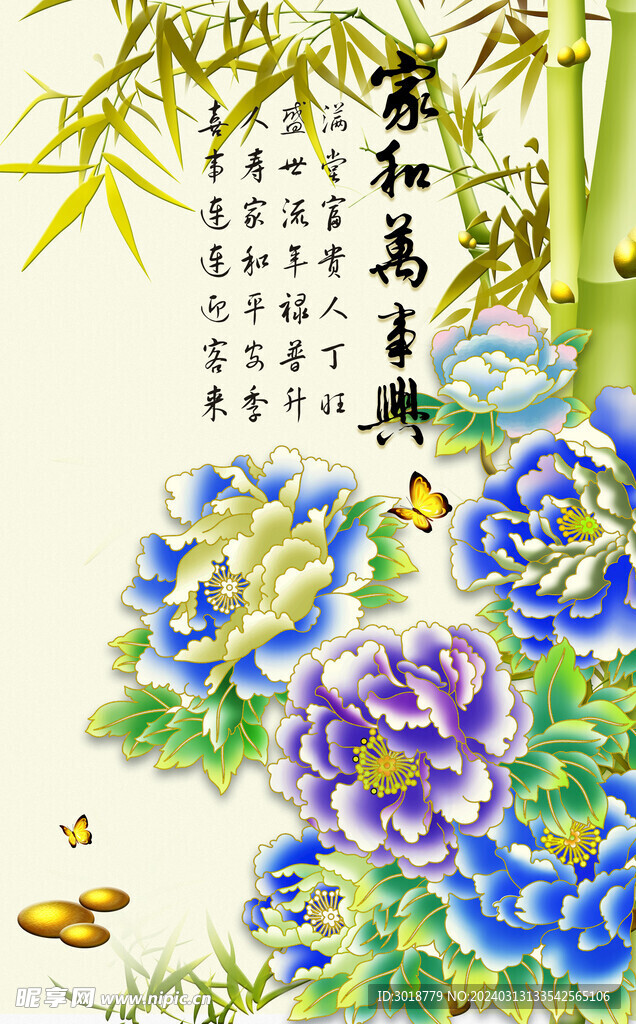 家和萬事興
满堂富貴人丁旺
盛世流年禄普升
人寿家和平安季
喜事连连迎客来
昵享网 www.nipic.cn
ID:3018779 NO:20240313133542565106